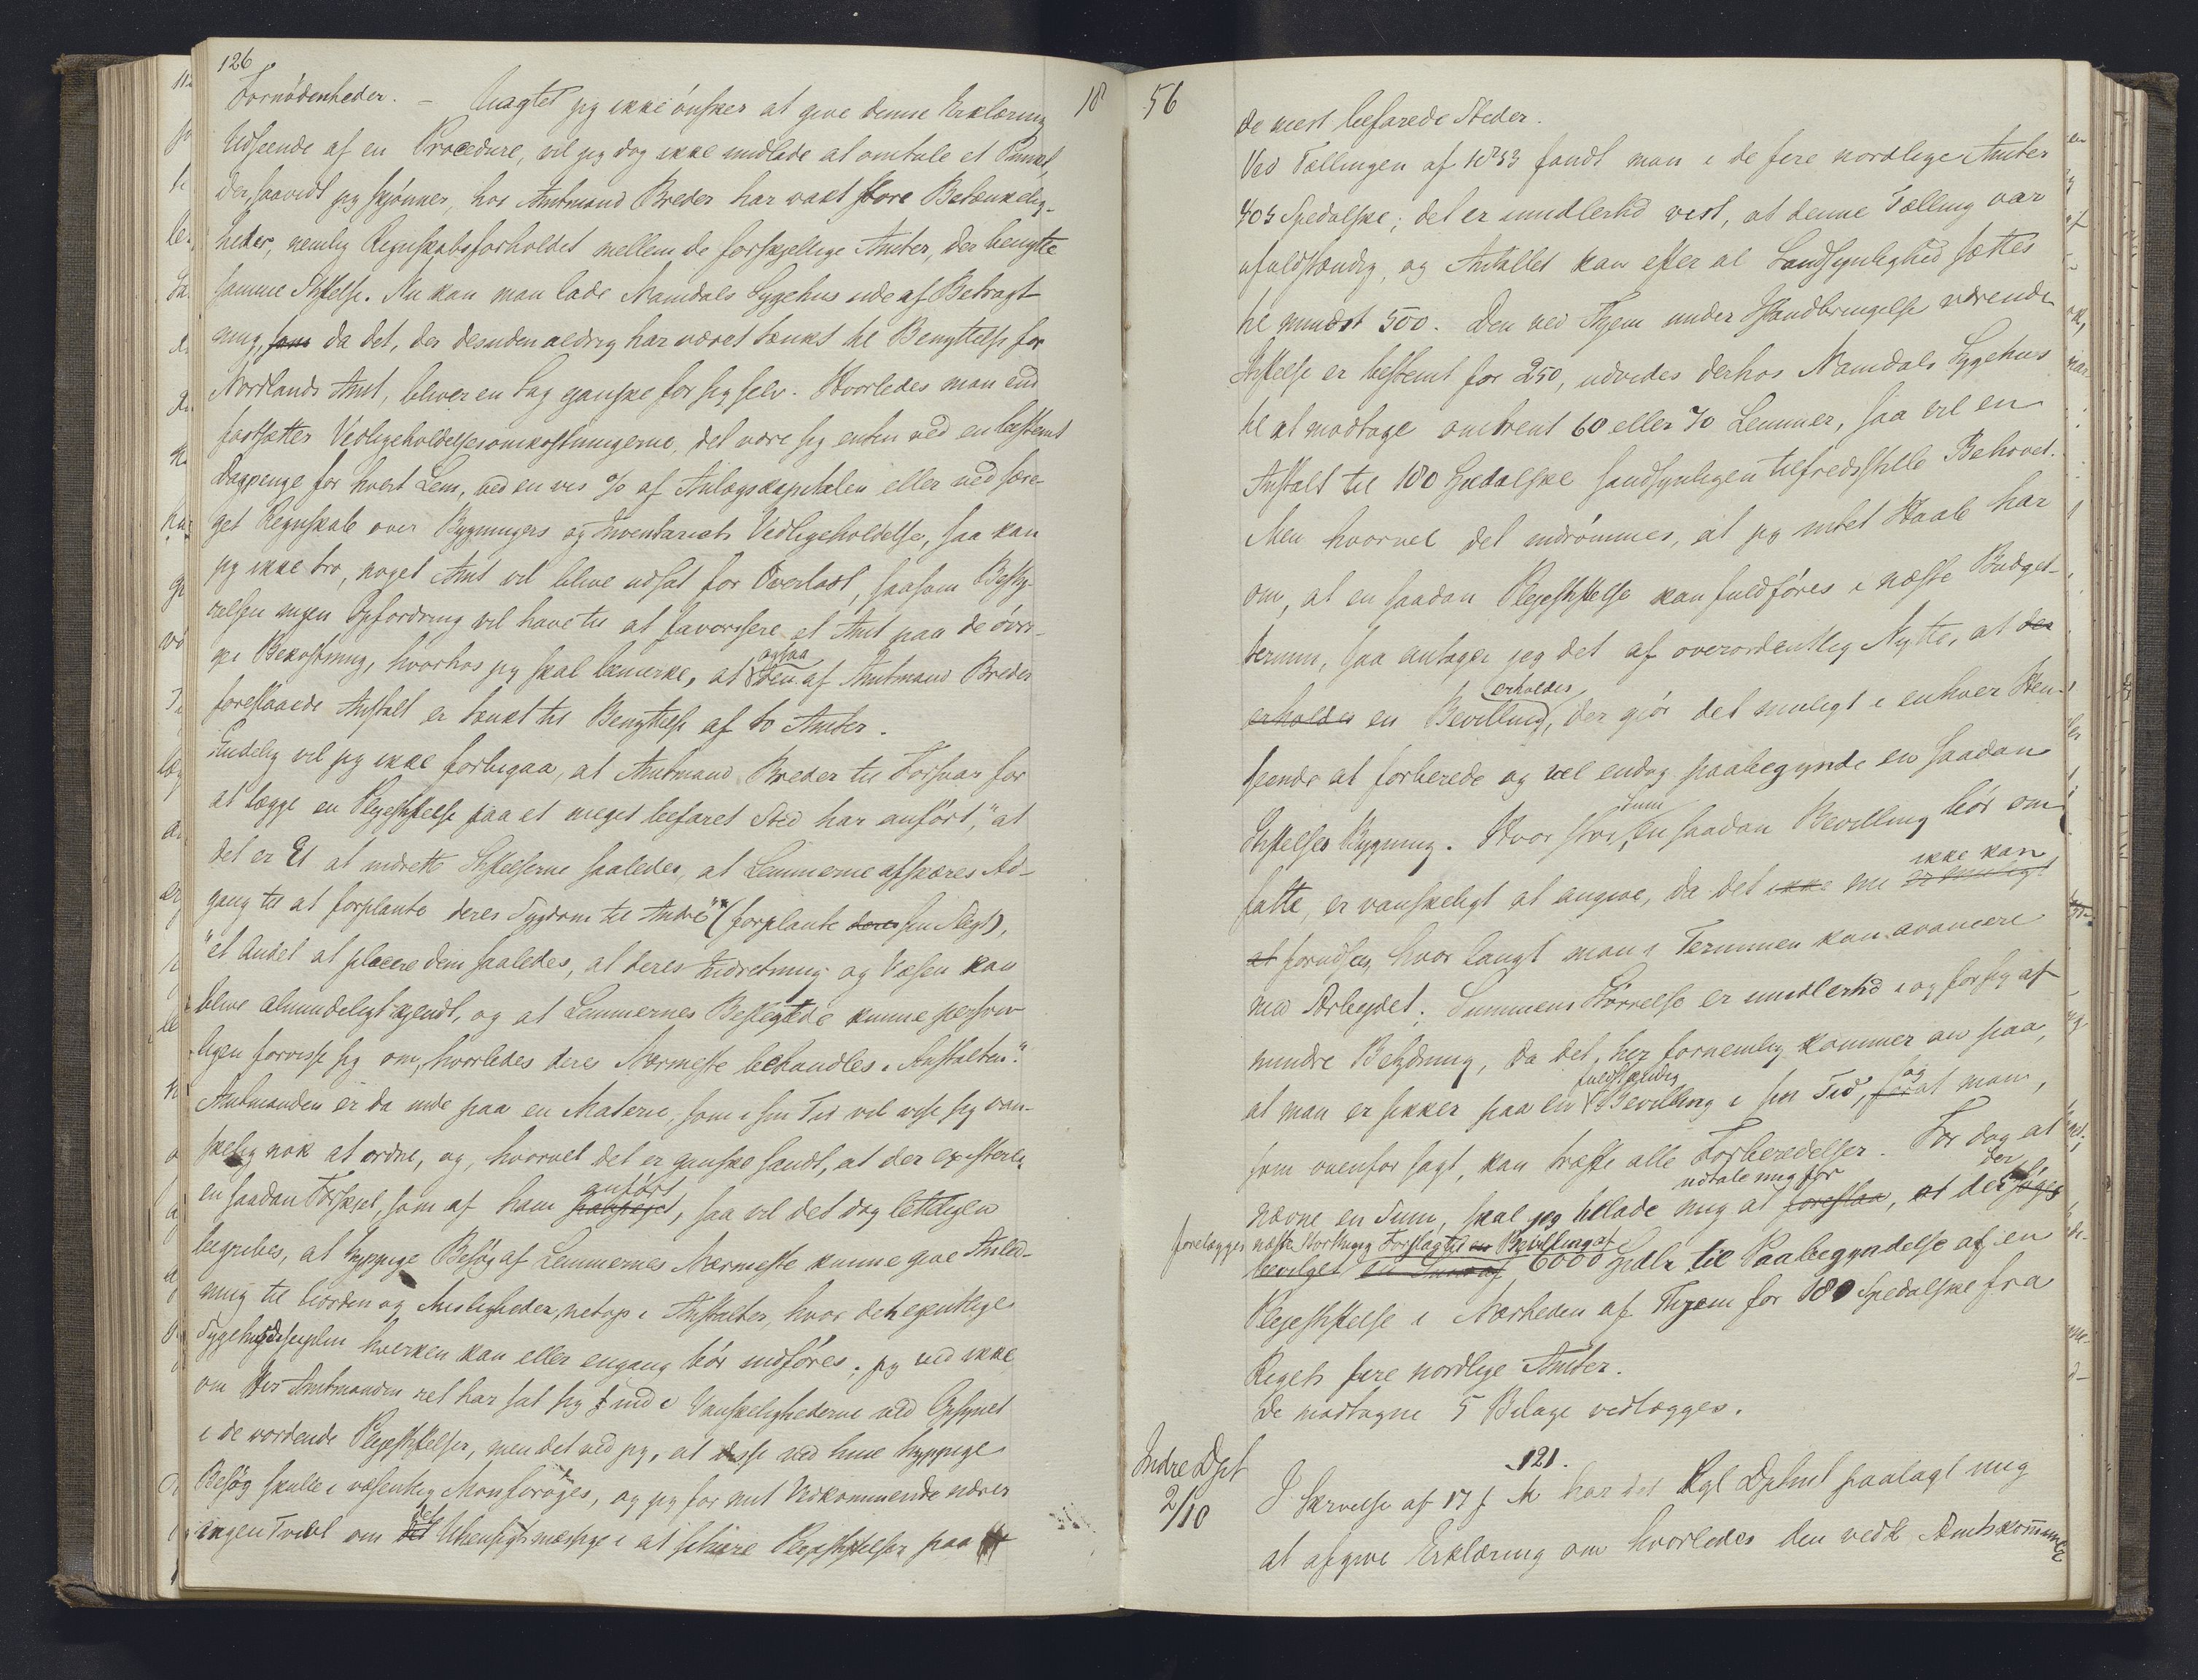 126
Fornødenheder. – Uagtet jeg ikke ønsker at give denne Erklæring
Udseende af en Procedure, vil jeg dog ikke undlade at omtale et Punct,
der, saavidt jeg skjønner, hos Amtmand Breder har vakt store Betænkelig-
heder, nemlig Regnskabsforholdet mellem de forskjellige Amter, der benytte
samme Stiftelse. Nu kan man lade Namdals Sygehus ude af Betragt-
ning, som da det, der desuden aldrig har været tænkt til Benyttelse for
Nordlands Amt, bliver en Sag ganske for sig selv. Hvorledes man end
fastsætter Vedligeholdelsesomkostningerne, det være sig enten ved en bestemt
Dagpenge for hvert Lem, ved en vis % af Anlægskapitalen eller ved sære-
get Regnskab over Bygningers og Inventariets Vedligeholdelse, saa kan
jeg ikke tro, noget Amt vil blive udsat for Overlast, saasom Besty-
relsen ingen Opfordring vil have til at favorisere et Amt paa de øvri-
ges Bekostning, hvorhos jeg skal bemærke, at ogsaa den af Amtmand Breder
foreslaaede Anstalt er tænkt til Benyttelse af to Amter.
Endelig vil jeg ikke forbigaa, at Amtmand Breder til Forsvar for
at lægge en Plejestiftelse paa et meget befaret Sted har anført, "at
det er Et at indrette Stiftelserne saaledes, at Lemmerne afskæres Ad-
gang til at forplante deres Sygdom til Andre" (forplante deres sin Slegt),
"et Andet at placere dem saaledes, at deres Indretning og Væsen kan
blive almindeligt kjendt, og at Lemmernes Beslegtede kunne person-
ligen forvisse sig om, hvorledes deres Nærmeste behandles i Anstalten."
Amtmanden er da inde paa en Materie, som i sin Tid vil vise sig van-
skelig nok at ordne, og, hvorvel det er ganske sandt, at der existerer
en saadan Forskjel, som af ham anført, saa vil det dog letteligen
begribes, at hyppige Besøg af Lemmernes Nærmeste kunne give Anled-
ning til Uorden og Misligheder, netop i Anstalter, hvor den egentlige
Sygehusdisciplin hverken kan eller engang bør indføres; jeg ved ikke
om Hr Amtmanden ret har sat sig ind i Vanskelighederne ved Opsynet
i de vordende Plejestiftelser, men det ved jeg, at disse ved hine hyppige
Besøg skulle i væsentlig Mon forøges, og jeg for mit Vedkommende nærer
ingen Tvivl om det Uhensigtsmæssige i at placere Plejestiftelser paa
18 56
de mest befarede Steder.
Ved Tællingen af 1853 fandt man i de fire nordlige Amter
403 Spedalske; det er imidlertid vist, at denne Tælling var
ufuldstændig, og Antallet kan efter al Sandsynlighed sættes
til mindst 500. Den ved Thjem under Istandbringelse værende
Stiftelse er bestemt for 250, udvides derhos Namdals Sygehus
til at modtage omtrent 60 eller 70 Lemmer, saa vil en
Anstalt til 180 Spedalske sandsynligen tilfredsstille Behovet.
Men hvorvel det indrømmes, at jeg intet Haab har
om, at en saadan Plejestiftelse kan fuldføres i næste Budget-
termin, saa antager jeg det af overordentlig Nytte, at der
erholdes en Bevilling erholdes, der gjør det muligt i enhver Hen-
seende at forberede og vel endog paabegynde en saadan
Stiftelses Bygning. Hvor stor Sum en saadan Bevilling bør om-
fatte, er vanskeligt at angive, da det ikke nu er muligt ikke kan
at forudsees, hvor langt man i Terminen kan avancere
med Arbejdet. Summens Størrelse er imidlertid i og for sig af
mindre Betydning, da det her fornemlig kommer an paa,
at man er sikker paa en fuldstændig Bevilling i sin Tid, for og at man,
som ovenfor sagt, kan træffe alle Forberedelser. For dog at
nævne en Sum, skal jeg tillade mig at foreslaa udtale mig for, at der søges
forelægges næste Storthing Forslag til en Bevilling af
bevilget en Sum af 6000 Spdlr til Paabegyndelse af en
Plejestiftelse i Nærheden af Thjem for 180 Spedalske fra
Rigets fire nordlige Amter.
De modtagne 5 Bilage vedlægges.
121.
Indre Dpt
2/10
I Skrivelse af 17 f M har det Kgl Dptmt paalagt mig
at afgive Erklæring om hvorledes den vedk Amtskommune